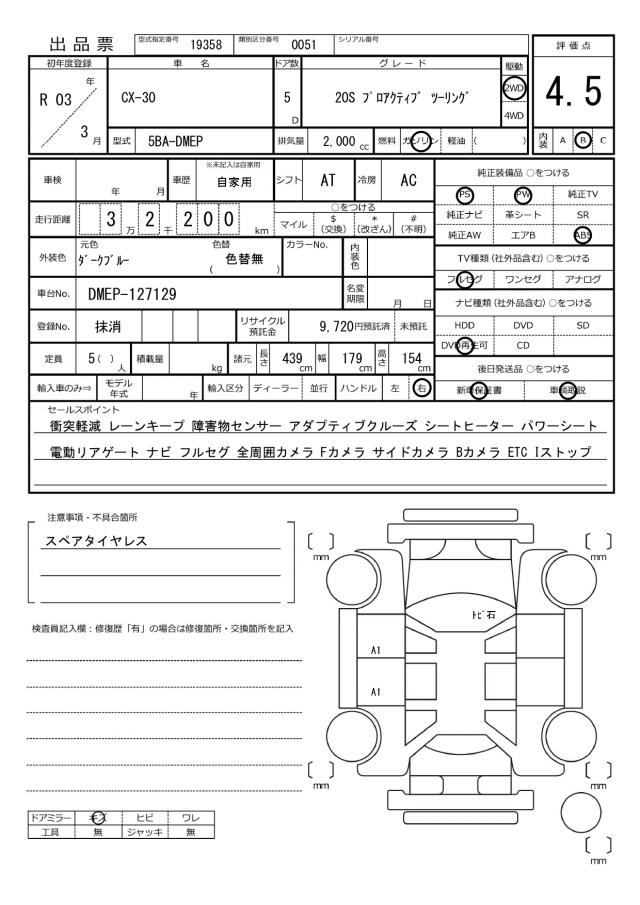 出品票 型式指定番号 19358 類別区分番号 0051 シリアル番号
評価点
4.5
内装 A B C
初年度登録 車名 ドア数 グレード 駆動
R 03 年 3 月
CX-30 5 D 20S プロアクティブ ツーリング 2WD 4WD
型式 5BA-DMEP 排気量 2,000 cc 燃料 ガソリン 軽油 ( )
車検 年 月 車歴 ※未記入は自家用 自家用 シフト AT 冷房 AC
走行距離 3 万 2 千 200 km
○をつける
マイル $(交換) *(改ざん) #(不明)
外装色 元色 ダークブルー 色替 ( 色替無 ) カラーNo. 内装色
車台No. DMEP-127129 名変期限 月 日
登録No. 抹消 リサイクル預託金 9,720円預託済 未預託
定員 5( )人 積載量 kg 諸元 長さ 439 cm 幅 179 cm 高さ 154 cm
輸入車のみ⇒ モデル年式 年 輸入区分 ディーラー 並行 ハンドル 左 右
純正装備品 ○をつける
PS PW 純正TV
純正ナビ 革シート SR
純正AW エアB ABS
TV種類(社外品含む)○をつける
フルセグ ワンセグ アナログ
ナビ種類(社外品含む)○をつける
HDD DVD SD
DVD再生可 CD
後日発送品 ○をつける
新車保証書 車輌取説
セールスポイント
衝突軽減 レーンキープ 障害物センサー アダプティブクルーズ シートヒーター パワーシート
電動リアゲート ナビ フルセグ 全周囲カメラ Fカメラ サイドカメラ Bカメラ ETC Iストップ
注意事項・不具合箇所
スペアタイヤレス
検査員記入欄：修復歴「有」の場合は修復箇所・交換箇所を記入
〔 〕 mm
〔 〕 mm
トビ石
A1
A1
〔 〕 mm
〔 〕 mm
〔 〕 mm
ドアミラー キズ ヒビ ワレ
工具 無 ジャッキ 無